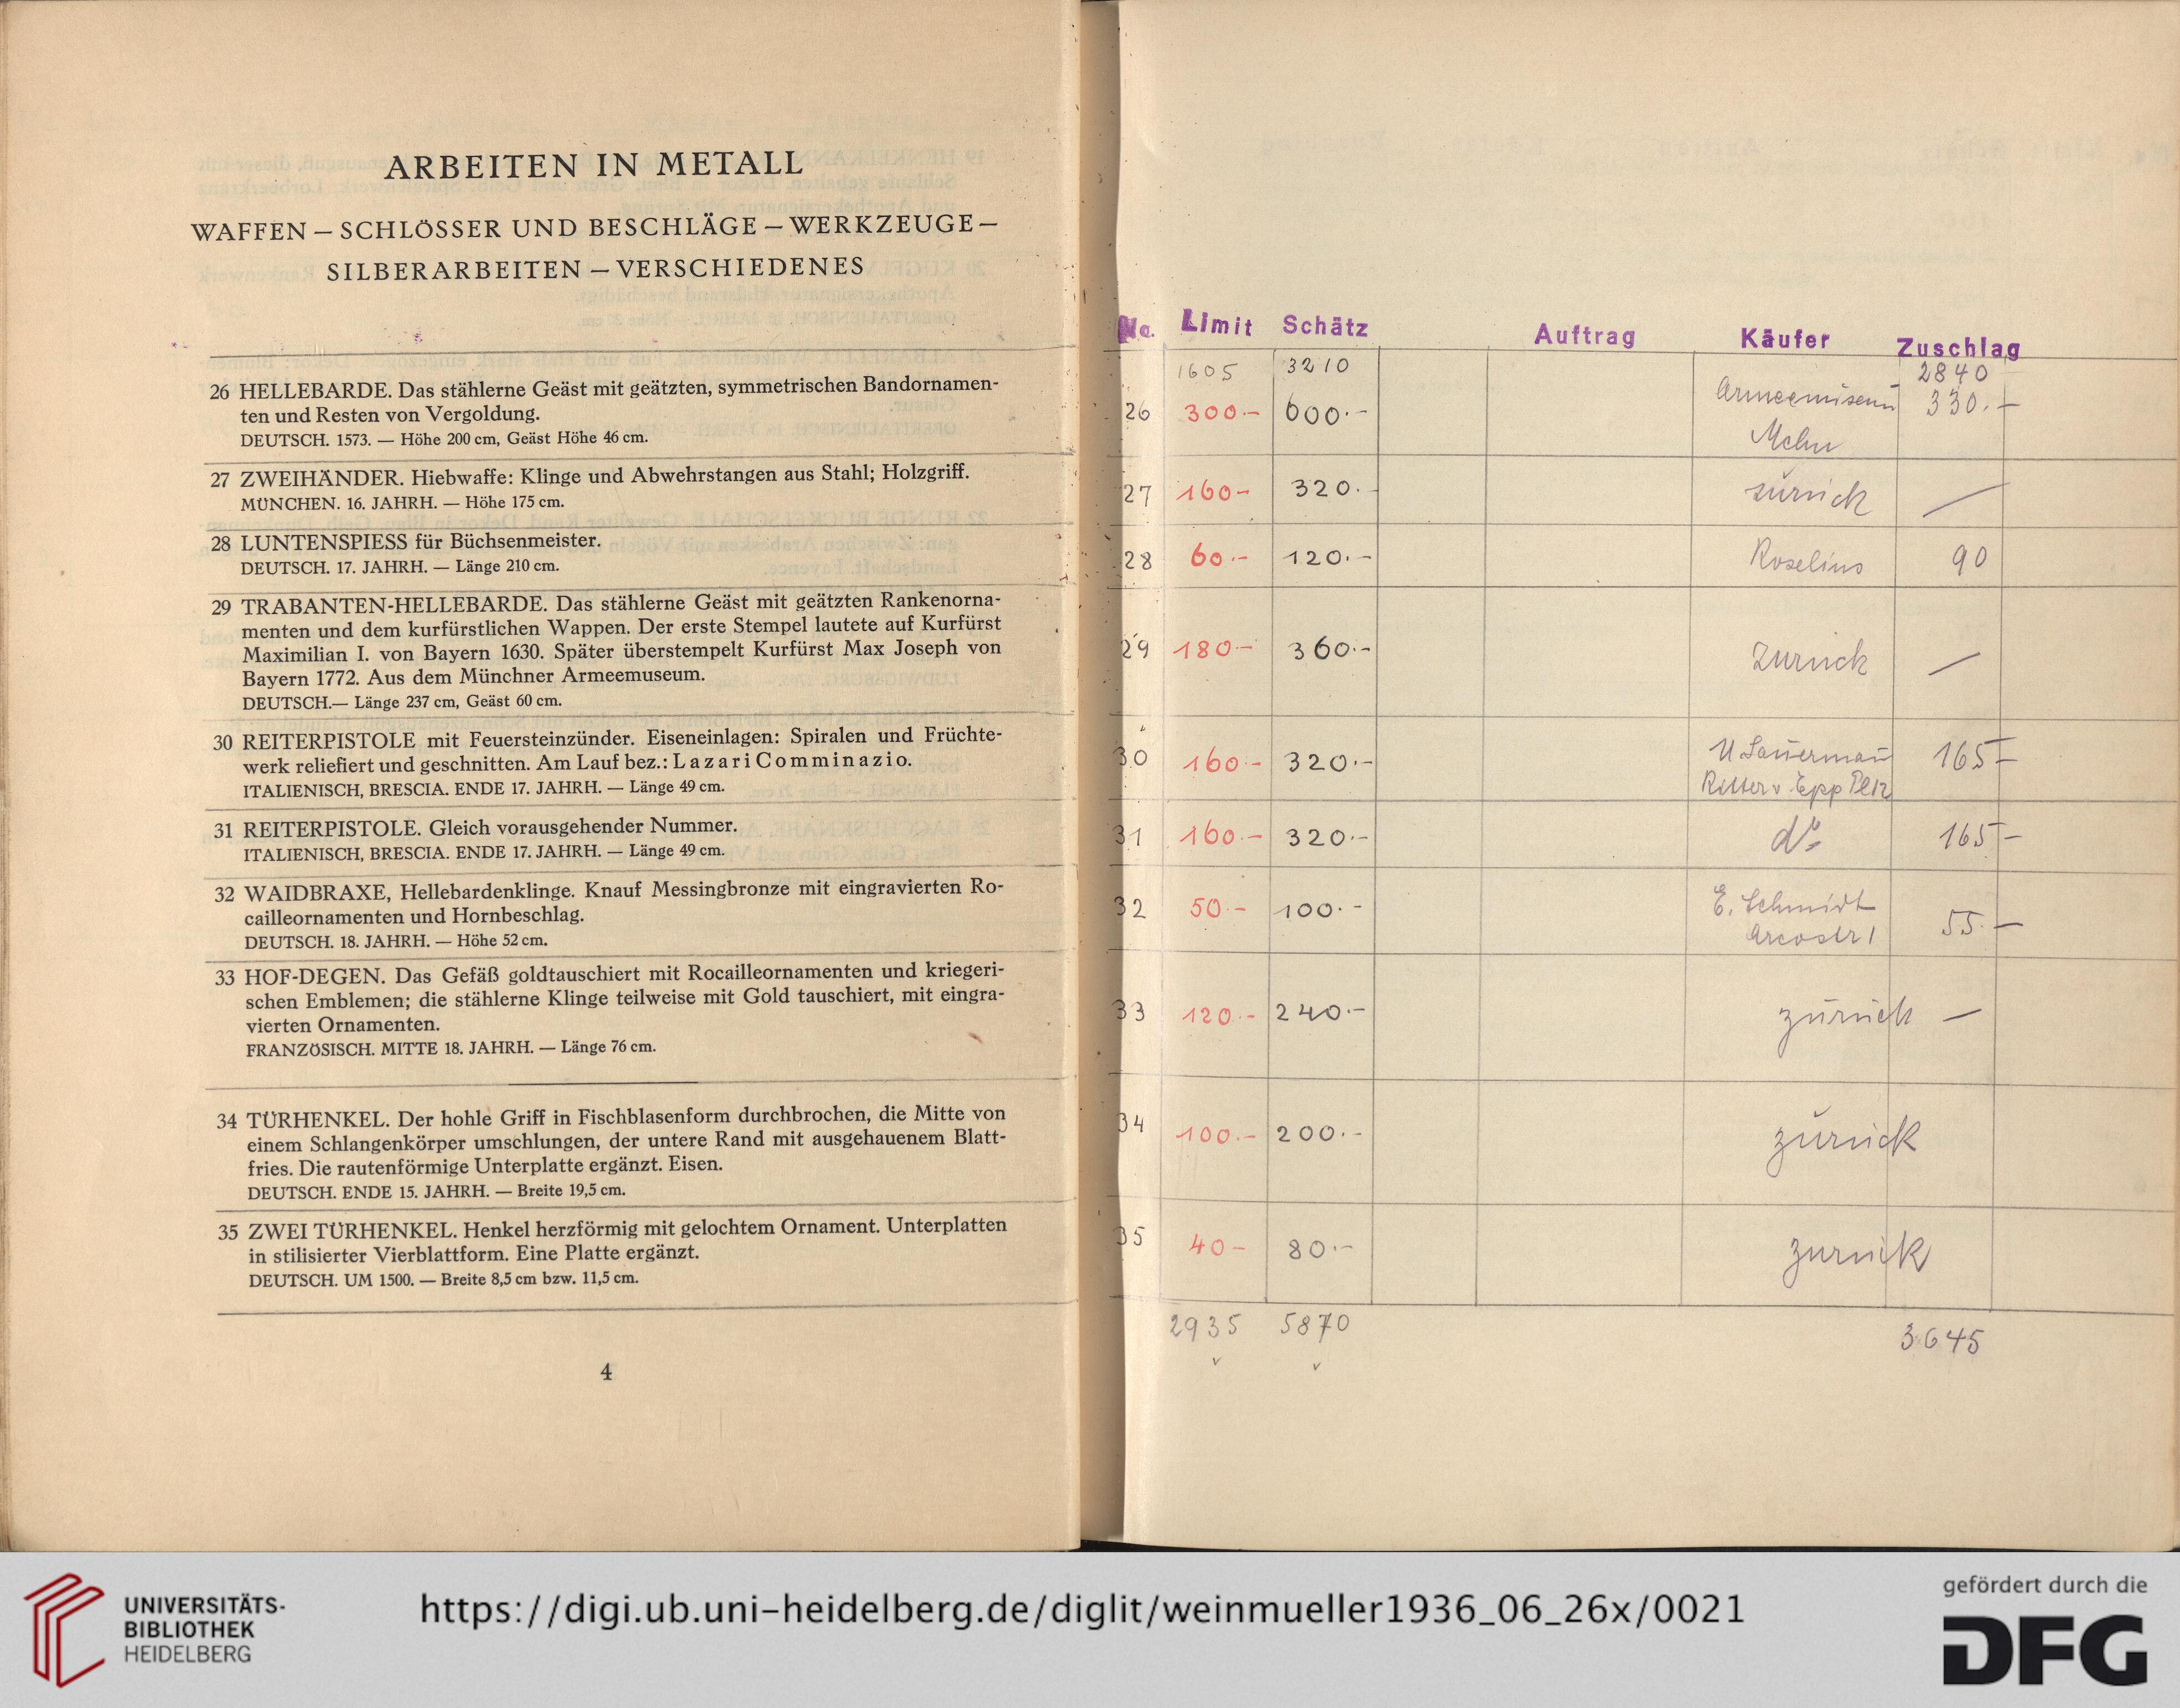 ARBEITEN IN METALL
WAFFEN — SCHLÖSSER UND BESCHLÄGE — WERKZEUGE —
SILBERARBEITEN — VERSCHIEDENES
26 HELLEBARDE. Das stählerne Geäst mit geätzten, symmetrischen Bandornamen-
ten und Resten von Vergoldung.
DEUTSCH. 1573. — Höhe 200 cm, Geäst Höhe 46 cm.
27 ZWEIHÄNDER. Hiebwaffe: Klinge und Abwehrstangen aus Stahl; Holzgriff.
MÜNCHEN. 16. JAHRH. — Höhe 175 cm.
28 LUNTENSPIESS für Büchsenmeister.
DEUTSCH. 17. JAHRH. — Länge 210 cm.
29 TRABANTEN-HELLEBARDE. Das stählerne Geäst mit geätzten Rankenorna-
menten und dem kurfürstlichen Wappen. Der erste Stempel lautete auf Kurfürst
Maximilian I. von Bayern 1630. Später überstempelt Kurfürst Max Joseph von
Bayern 1772. Aus dem Münchner Armeemuseum.
DEUTSCH.— Länge 237 cm, Geäst 60 cm.
30 REITERPISTOLE mit Feuersteinzünder. Eiseneinlagen: Spiralen und Früchte-
werk reliefiert und geschnitten. Am Lauf bez.: Lazari Comminazio.
ITALIENISCH, BRESCIA. ENDE 17. JAHRH. — Länge 49 cm.
31 REITERPISTOLE. Gleich vorausgehender Nummer.
ITALIENISCH, BRESCIA. ENDE 17. JAHRH. — Länge 49 cm.
32 WAIDBRAXE, Hellebardenklinge. Knauf Messingbronze mit eingravierten Ro-
cailleornamenten und Hornbeschlag.
DEUTSCH. 18. JAHRH. — Höhe 52 cm.
33 HOF-DEGEN. Das Gefäß goldtauschiert mit Rocailleornamenten und kriegeri-
schen Emblemen; die stählerne Klinge teilweise mit Gold tauschiert, mit eingra-
vierten Ornamenten.
FRANZÖSISCH. MITTE 18. JAHRH. — Länge 76 cm.
34 TÜRHENKEL. Der hohle Griff in Fischblasenform durchbrochen, die Mitte von
einem Schlangenkörper umschlungen, der untere Rand mit ausgehauenem Blatt-
fries. Die rautenförmige Unterplatte ergänzt. Eisen.
DEUTSCH. ENDE 15. JAHRH. — Breite 19,5 cm.
35 ZWEI TÜRHENKEL. Henkel herzförmig mit gelochtem Ornament. Unterplatten
in stilisierter Vierblattform. Eine Platte ergänzt.
DEUTSCH. UM 1500. — Breite 8,5 cm bzw. 11,5 cm.
4
No. Limit Schätz Auftrag Käufer Zuschlag
1605 3210 2840
26 300.- 600.- Armeemuseum 330.-
27 160- 320.- zurück —
28 60.- 120.- Roselius 90
29 180- 360.- zurück —
30 160.- 320.- Sauermann 165-
Ritter v. Epp Pl 12
31 160.- 320.- do 165-
32 50.- 100.- E. Schmidt 55.-
Arcostr 1
33 120.- 240.- zurück —
34 100.- 200.- zurück
35 40- 80.- zurück
2935 5870 3645
UNIVERSITÄTS-
BIBLIOTHEK
HEIDELBERG
https://digi.ub.uni-heidelberg.de/diglit/weinmueller1936_06_26x/0021
gefördert durch die
DFG